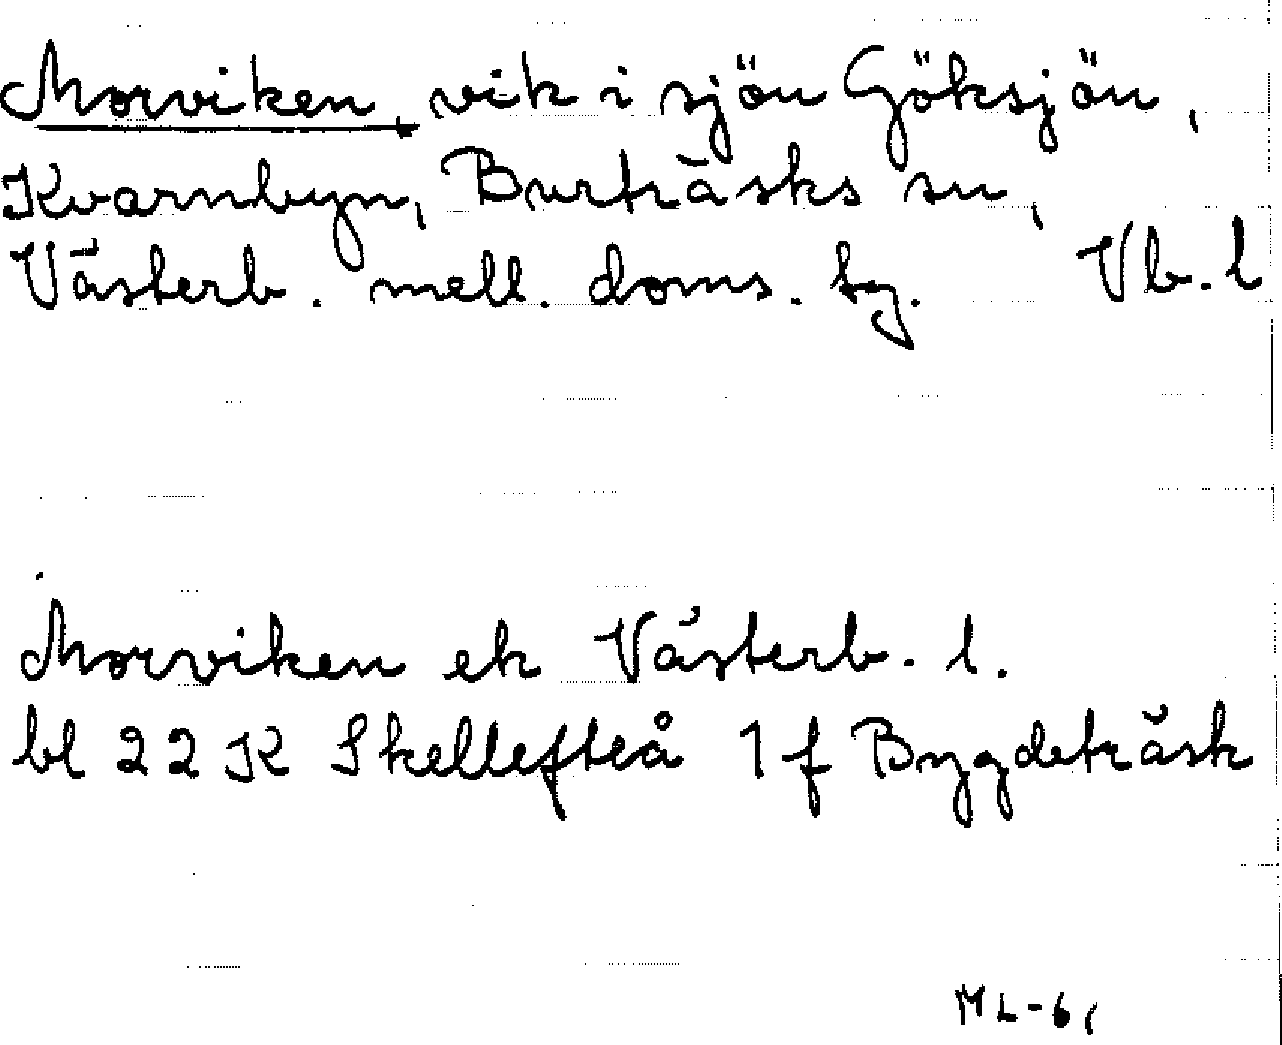 Morviken, vik i sjön Göksjön,
Kvarnbyn, Burträsks sn,
Västerb. mell. doms. tg. Vb. l
Morviken ek Västerb. l.
bl 22 K Skellefteå 1 f Bygdeträsk
ML-61